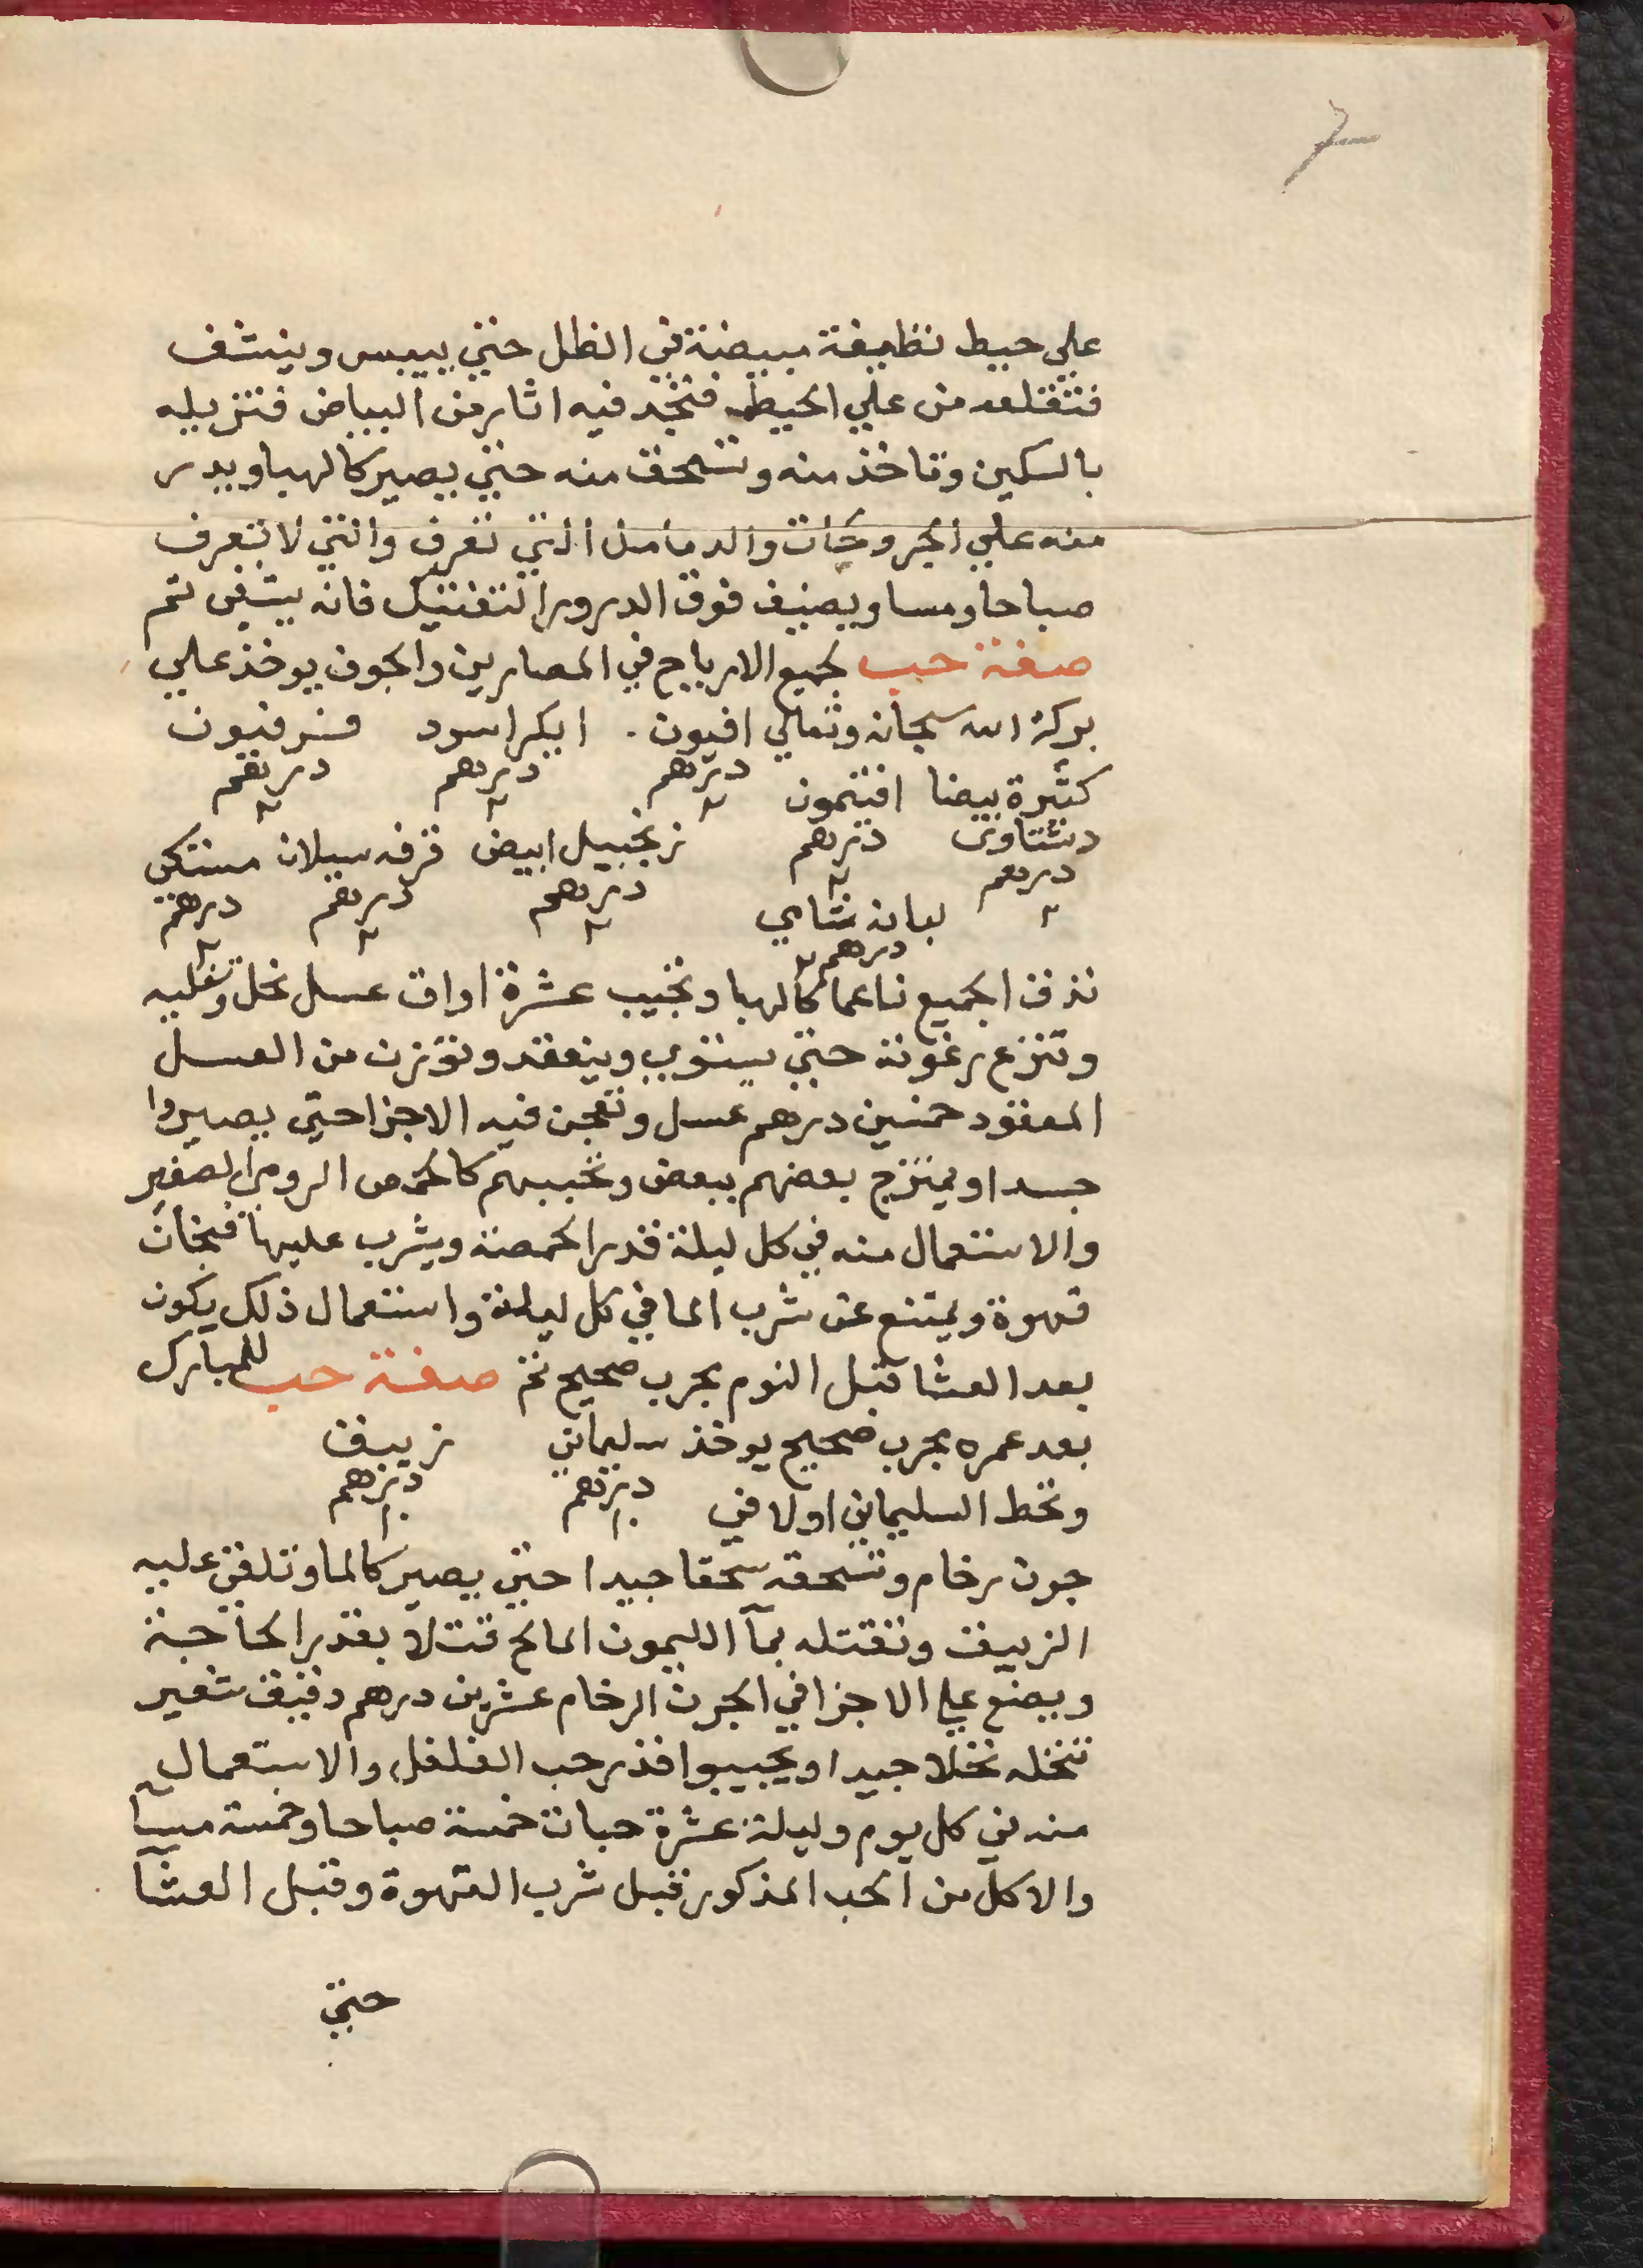 علي حيط نظيفة مبيضة في الظل حتي ييبس وينشف
فتقلعه من علي الحيط فتجد فيه اثار من البياض فتزيله
بالسكين وتاخذ منه وتسحق منه حتي يصير كالهبا ويدر
منه علي الجروحات والدمامل التي تعرف والتي لا تعرف
صباحا ومسا ويضيف فوق الدرور التفتيك فانه يشفي تم
صفة حب لجميع الارياح في المصارين والجوف يوخذ علي
بركة الله سبحانه وتعالي افيون . ايكر اسود فنرفيون
درهم ٢ درهم ٢ درهم ٢
كثيرة بيضا افتيمون
درهم ٢ درهم ٢
زنجبيل ابيض قرفه سيلان مستكي
درهم ٢ درهم ٢ درهم ٢
لبان شامي
درهم ٢
تدق الجميع ناعما كالهبا وتجيب عشرة اواق عسل نحل وتغليه
وتنزع رغوته حتي يستوي وينعقد وتوزن من العسل
المعقود خمسين درهم عسل وتعجن فيه الاجزا حتي يصيروا
جسدا ويمتزج بعضهم ببعض وتحببهم كالحمص الرومي الصغير
والاستعمال منه في كل ليلة قدر الحمصة ويشرب عليها فنجان
قهوة ويمتنع عن شرب الما في كل ليلة واستعمال ذلك يكون
بعد العشا قبل النوم مجرب صحيح تم صفة حب للمبارك
بعد عمره مجرب صحيح يوخذ سليماني زيبق
درهم ١٠ درهم ١٠
وتحط السليماني اولا في
جرن رخام وتسحقه سحقا جيدا حتي يصير كالما وتلقي عليه
الزيبق وتقتله بمآ الليمون المالح قتلا بقدر الحاجة
ويصنع علي الاجزا في الجرن الرخام عشرين درهم دقيق شعير
تنخله نخلا جيدا ويحببوا قدر حب الفلفل والاستعمال
منه في كل يوم وليلة عشرة حبات خمسة صباحا وخمسة مسآ
والاكل من الحب المذكور قبل شرب القهوة وقبل العشآ
حتي